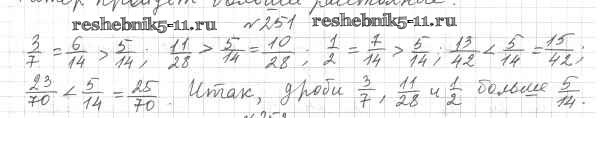 тёр пройдёт больше расстояние.
reshebnik5-11.ru №251 reshebnik5-11.ru
3/7 = 6/14 > 5/14; 11/28 > 5/14 = 10/28; 1/2 = 7/14 > 5/14; 13/42 < 5/14 = 15/42;
23/70 < 5/14 = 25/70. Итак, дроби 3/7, 11/28 и 1/2 больше 5/14.